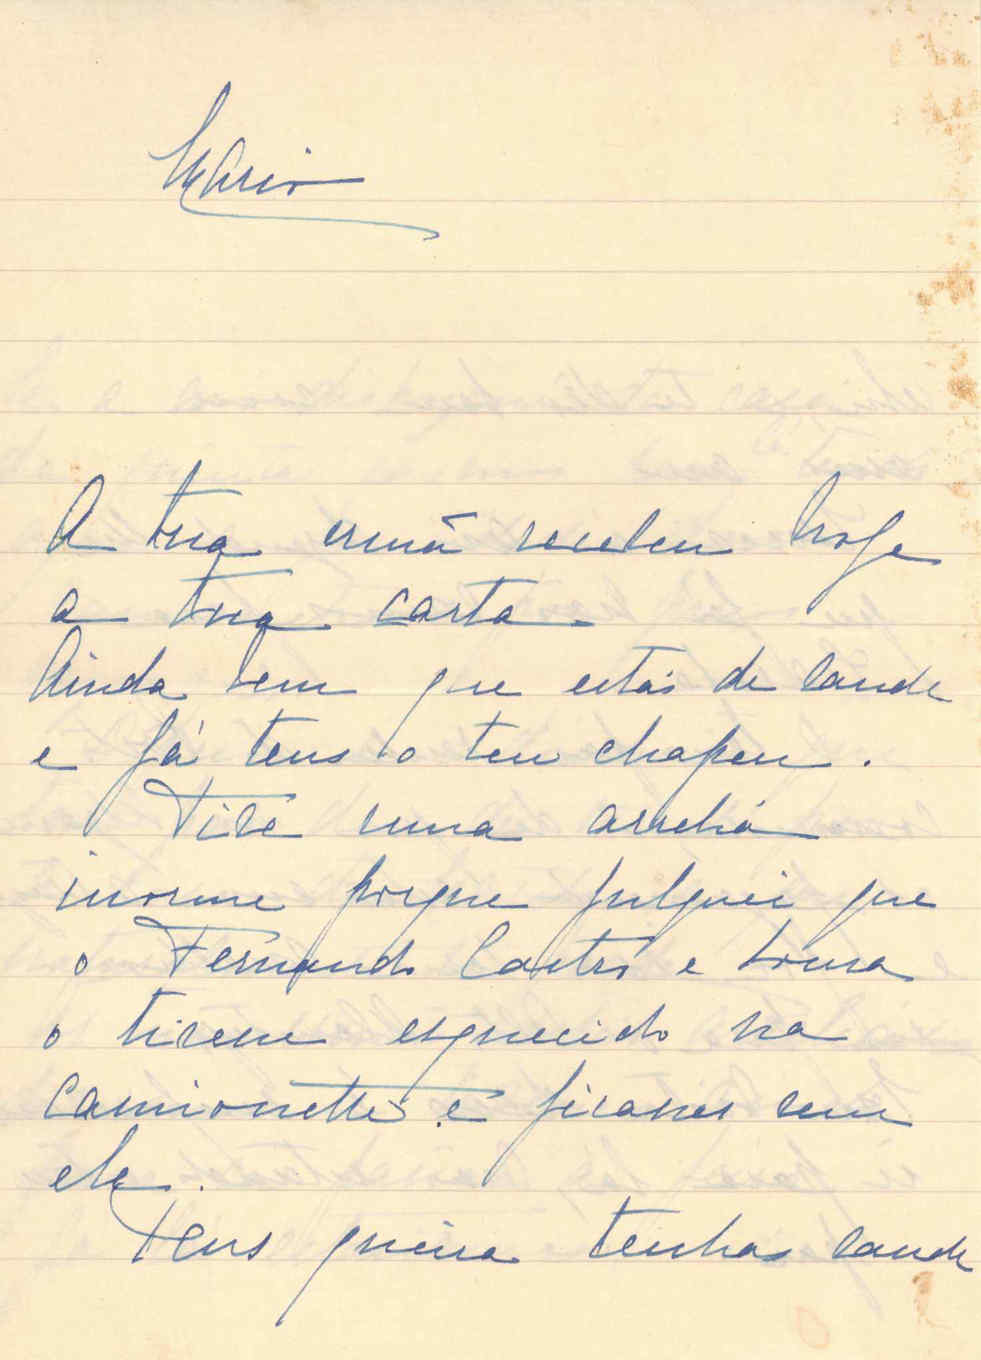 Mario
A tua irmã recebeu hoje
a tua carta.
Ainda bem que estás de saude
e já tens o teu chapeu.
Tive uma arrelia
inorme porque julguei que
o Fernando Castro e Sousa
o tivesse esquecido na
camionette e ficasses sem
ele.
Deus queira tenhas saude